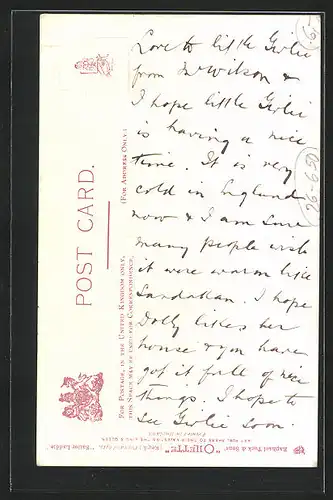 Love to little Girlie
from Dr Wilson &
I hope little Girlie
is having a nice
time. It is very
cold in England
now & I am sure
many people wish
it were warm like
Sandakan. I hope
Dolly likes her
house & you have
got it full of nice
things. I hope to
see Girlie soon.
POST CARD.
(FOR ADDRESS ONLY.)
FOR POSTAGE, IN THE UNITED KINGDOM ONLY,
THIS SPACE MAY BE USED FOR CORRESPONDENCE.
Raphael Tuck & Sons' "OILETTE"
ART PUBLISHERS TO THEIR MAJESTIES THE KING & QUEEN.
26-650